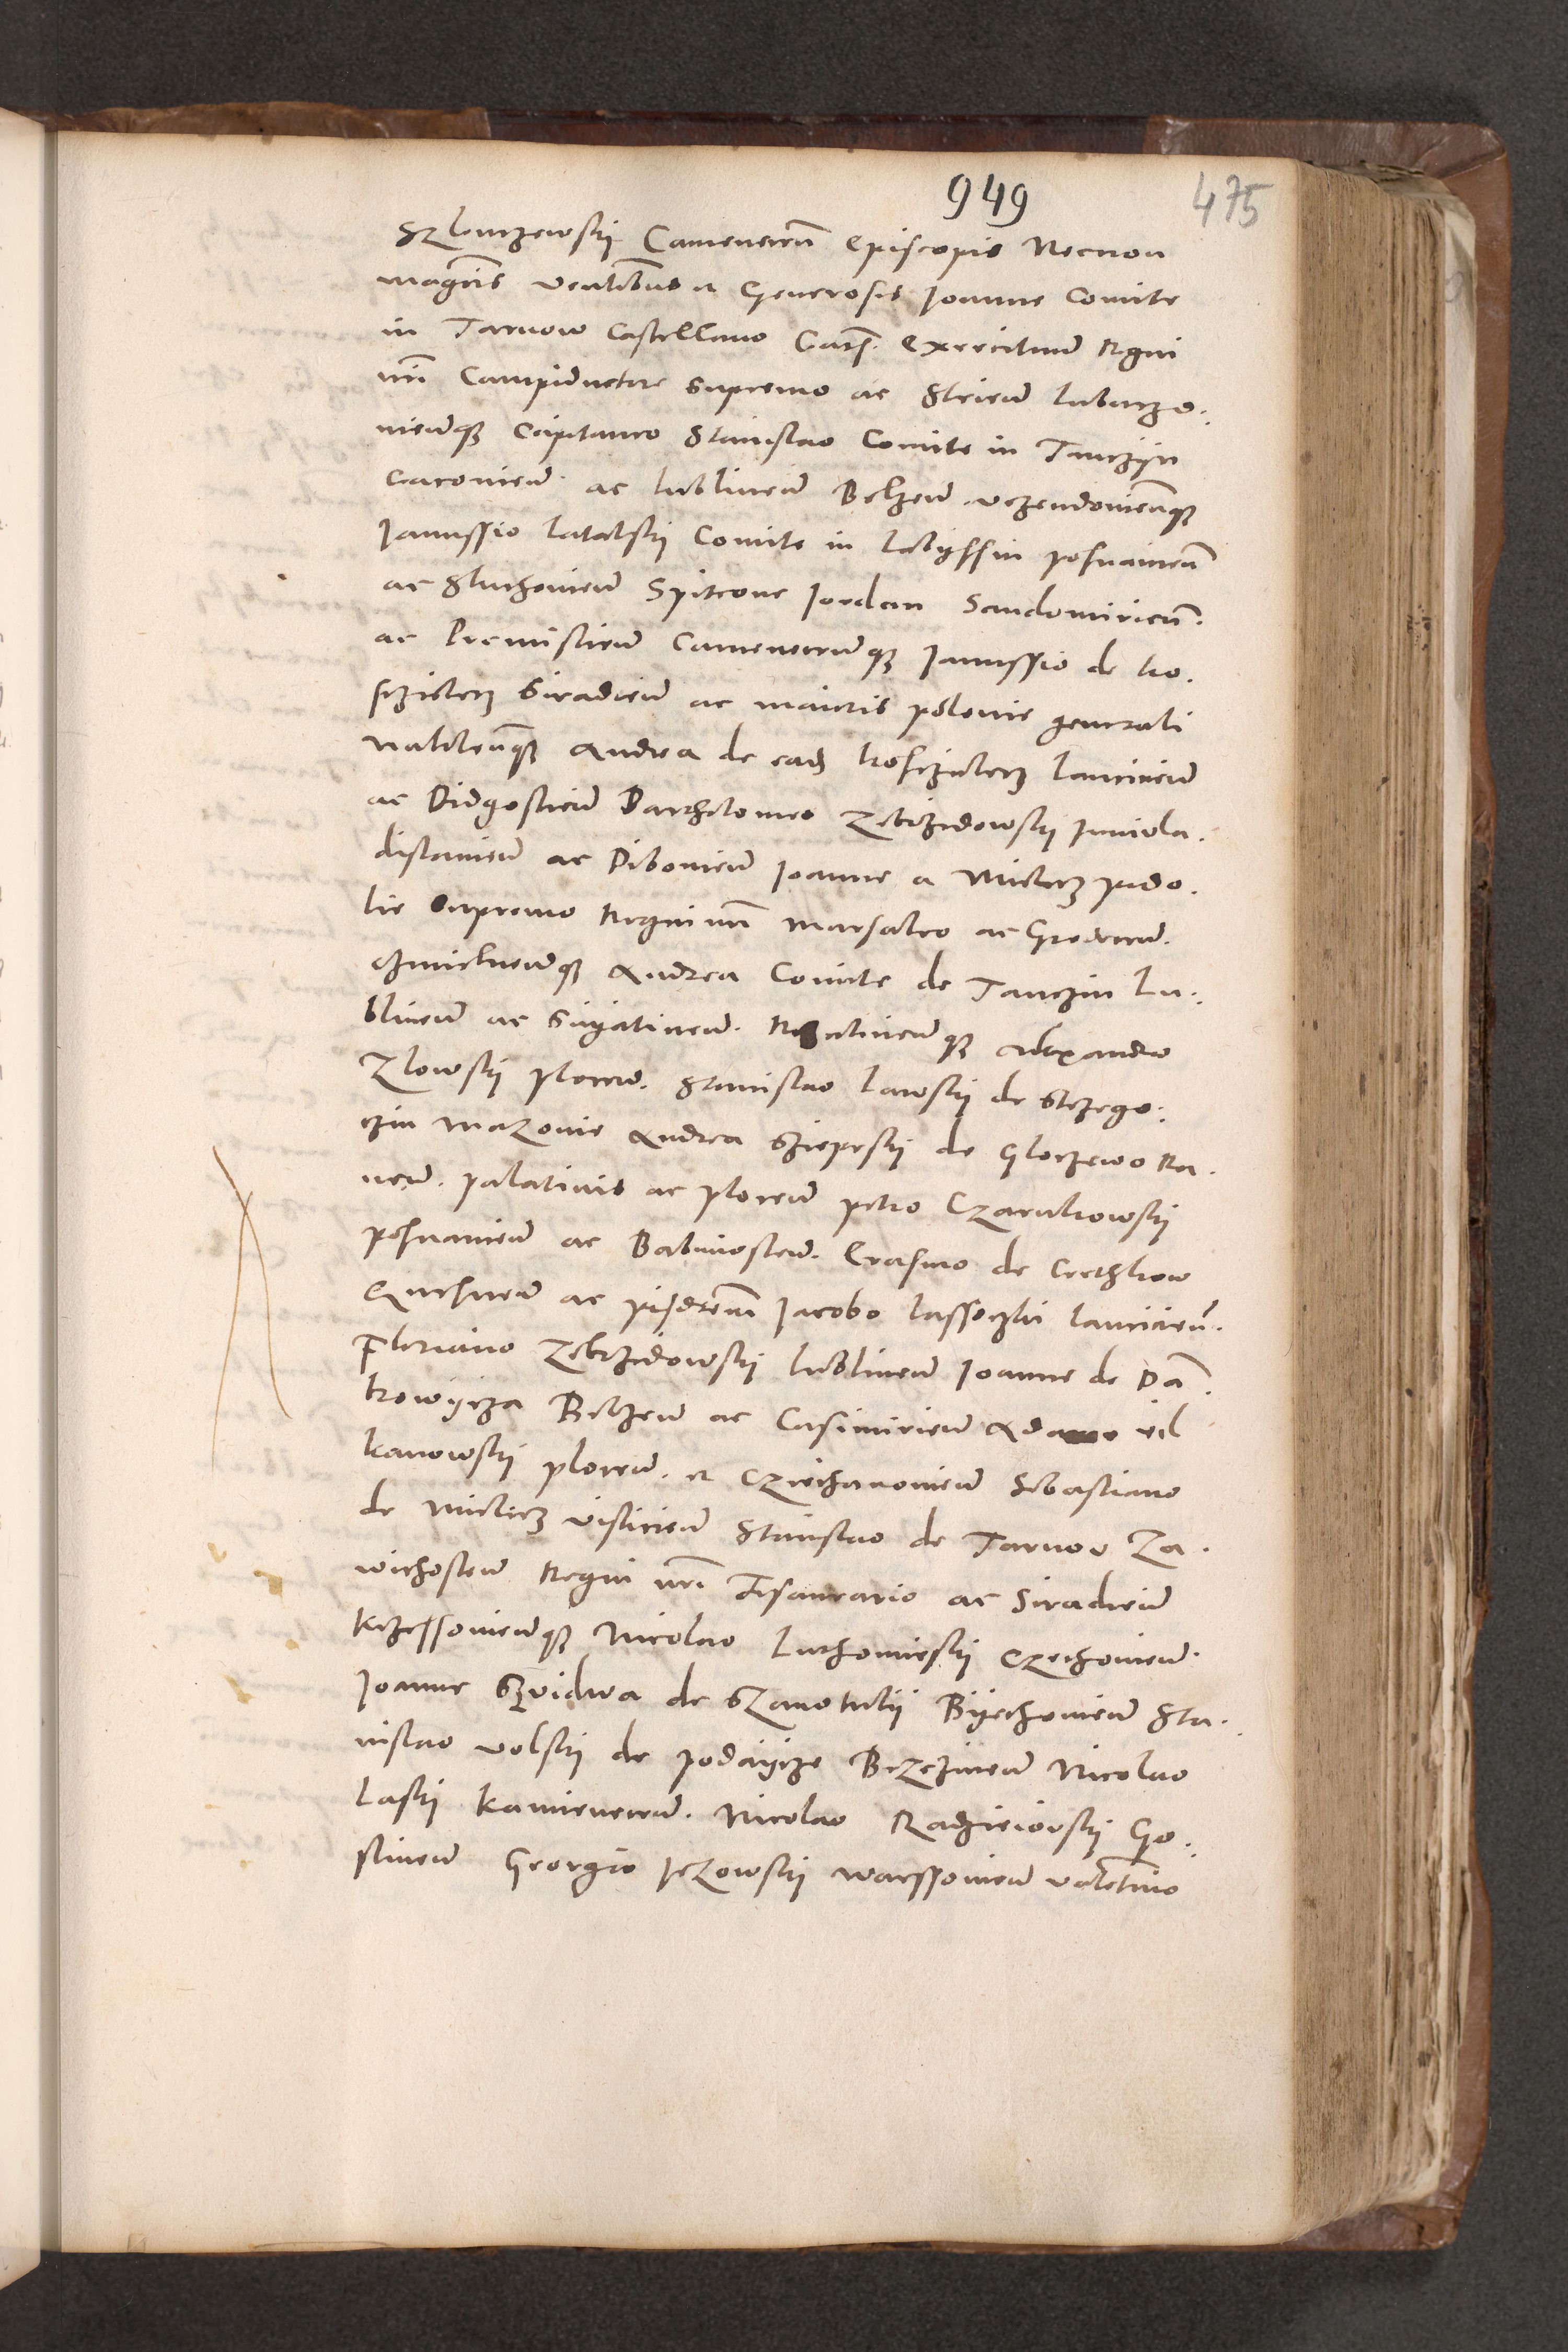 949
475
Szlunczewskÿ Camenecen̄ Episcopis Necnon
magcīs Venlibus et Generosis Joanne Comite
in Tarnow Castellano Crac̄. Exercituum Regni
nr̄i Campiductore Supremo ac Stricen̄ Lubaczo.
nien̄que Capitaneo Stanislao Comite in Tanczÿn
Cracovien̄. ac Lublinen̄ Belzen̄.
Janussio Latalskÿ Comite in Labÿssin Posnanien̄
ac Sluchovien̄ Spitcone Jordan Sandomirien̄.
ac Premislien̄ Camenecen̄que Janussio de Ko.
sczielecz Siradien̄ ac maioris Polonie generali
Naklen̄que Andrea de ead Kosczielecz Lancicien̄
ac Bidgostien̄ Bartholomeo Zebrzidowskÿ Juniula.
dislavien̄ ac Dibovien̄ Joanne a Mielecz Podo.
lie Supremo Regni nr̄i Marsalco ac Grodecen̄.
Chmielnicen̄que Andrea Comite de Tanczin Lu.
blinen̄ ac Snÿatinen̄. Alexandro
Zlowskÿ Plocen̄. Stanislao Lawskÿ de Strzego.
czin Mazovie Andrea Szierpskÿ de Gloczewo Ra.
nen̄. Palatinis ac Plocen̄ Petro Czarnkowskÿ
Posnanien̄ ac Babimosten̄. Erasmo de Crethkow
Gnesnen̄ ac Pÿsdren̄ Jacobo Lassoczki Lancicien̄.
Floriano Zebrzidowskÿ Lublinen̄ Joanne de Dā.
browÿcza Belzen̄ ac Casimirien̄ Adamo vil
kanowskÿ Plocen̄. et Cziechanovien̄ Sebastiano
de Mielecz Vislicien̄ Stanislao de Tarnow Za.
wichosten̄ Regni nr̄i Tesaurario ac Siradien̄
Krzessovien̄que Nicolao Luthomirskÿ Czechovien̄.
Joanne Szvidwa de Szamotulÿ Bÿechovien̄ Sta.
nislao Volskÿ de Podaÿcze Brzezinen̄ Nicolao
Laskÿ Kamienecen̄. Nicolao Radzieiovskÿ Go.
stinen̄ Georgio Jezowskÿ Warssovien̄ Valentino